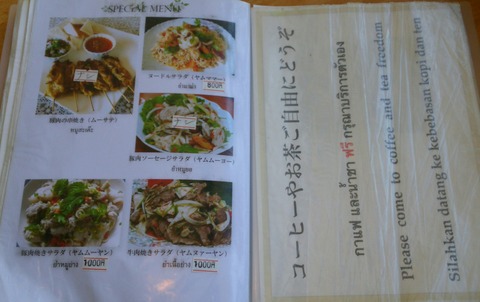 SPECIAL MENU
ナシ
豚肉の串焼き（ムーサテ）
หมูสะเต๊ะ
ヌードルサラダ（ヤムママー）
ยำมาม่า
800円
ナシ
豚肉ソーセージサラダ（ヤムムーヨー）
ยำหมูยอ
豚肉焼きサラダ（ヤムムーヤン）
ยำหมูย่าง 1000円
牛肉焼きサラダ（ヤムヌァーヤン）
ยำเนื้อย่าง 1000円
コーヒーやお茶ご自由にどうぞ
กาแฟ และน้ำชา ฟรี กรุณาบริการตัวเอง
Please come to coffee and tea freedom
Silahkan datang ke kebebasan kopi dan teh